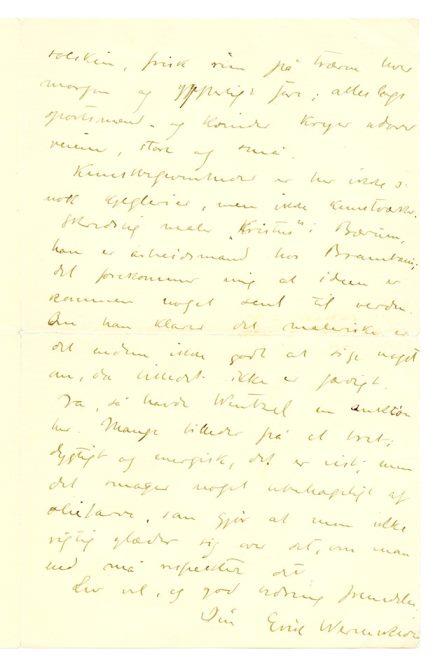 solskin, frisk rim på trærne hver
morgen og ypperligt føre; alleslags
sportsmænd og kvinder kryr udover
veiene, store og små.
Kunstbegivenheder er her ikke
nok, men ikke kunstværker.
maler "Kristus" i Bærum,
han er arbeidsmand hos
det forekommer mig at ideen er
kommen noget sent til verden.
Om han klarer det maleriske er
det endnu ikke godt at sige noget
om, da billedet ikke er færdigt.
Ja, så havde Wentzel en auktion
her. Mange billeder på et bret;
dygtigt og energisk, det er vist, men
det smager noget ubehageligt af
oliefarve, som gjør at man ikke
rigtig glæder sig over det, om man
end må respektere det.
Lev vel, og god bedring fremdeles
Din Werenskiold